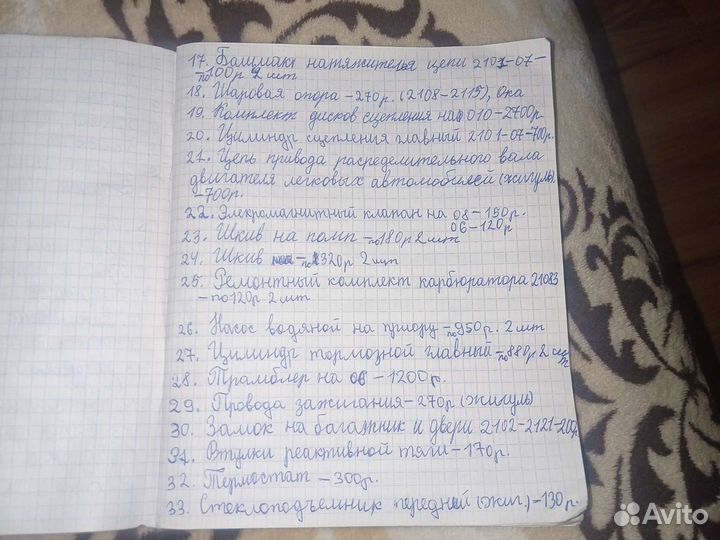 17. Башмак натяжителя цепи 2101-07-
-по100р 2 шт
18. Шаровая опора -270р. (2108-2115), Ока
19. Комплект дисков сцепления на 010-2700р
20. Цилиндр сцепления главный 2101-07-700р.
21. Цепь привода распределительного вала
двигателя легковых автомобилей (жигули)
-700р.
22. Элекромагнитный клапан на 08-150р.
06-120р
23. Шкив на помп -по180р 2 шт
24. Шкив -по 320р 2 шт
25. Ремонтный комплект карбюратора 21083
-по120р 2 шт
26. Насос водяной на приору -по950р. 2 шт
27. Цилиндр тормозной главный -по880р 2 шт
28. Трамблер на 06 -1200р.
29. Провода зажигания-270р (жигули)
30. Замок на багажник и двери 2102-2121-200р
31. Втулки реактивной тяги -170р.
32. Термостат -300р.
33. Стеклоподъемник передний (жиг.) -130р.
Avito